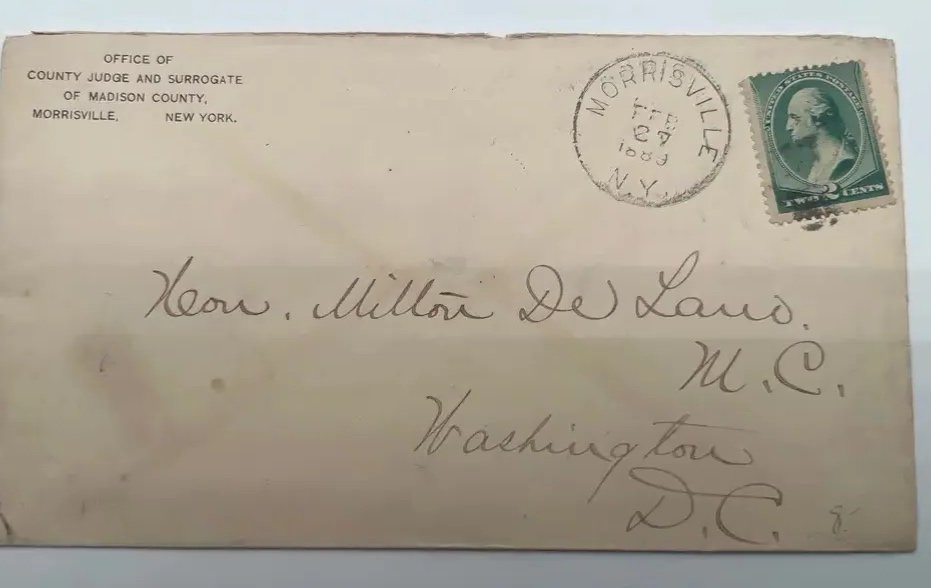 OFFICE OF
COUNTY JUDGE AND SURROGATE
OF MADISON COUNTY,
MORRISVILLE, NEW YORK.
MORRISVILLE
FEB
27
1889
N.Y.
UNITED STATES POSTAGE
TWO 2 CENTS
Hon. Milton De Lano.
M.C.
Washington
D.C.